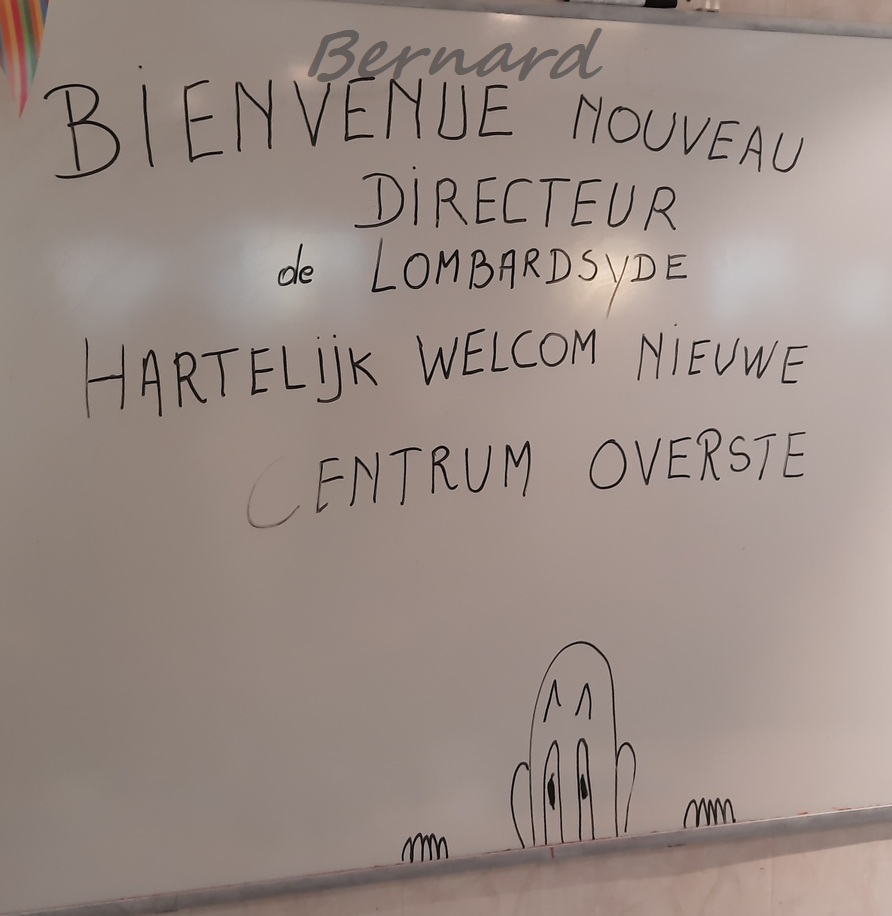 Bernard
BIENVENUE NOUVEAU
DIRECTEUR
de LOMBARDSYDE
HARTELIJK WELCOM NIEUWE
CENTRUM OVERSTE